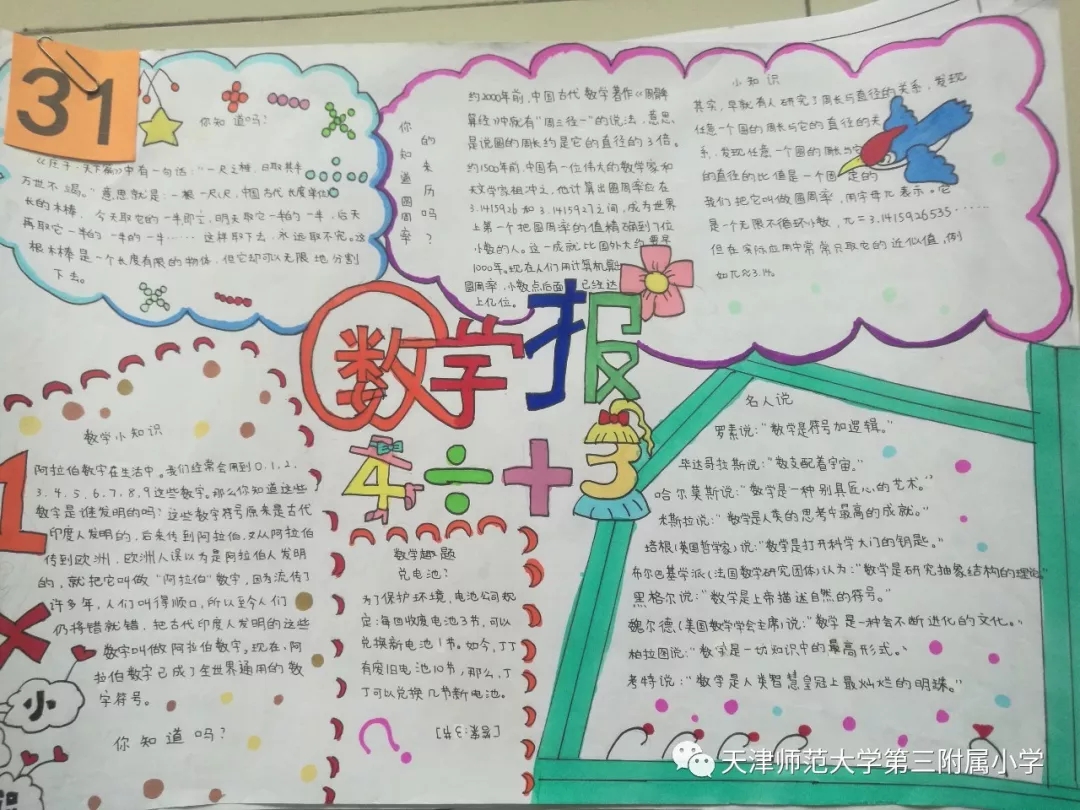 31
你知道吗?
《庄子·天下篇》中有一句话:"一尺之棰,日取其半
万世不竭。"意思就是:一根一尺(尺,中国古代长度单位)
长的木棒,今天取它的一半即言,明天取它一半的一半,后天
再取它一半的一半的一半……这样取下去,永远取不完。这
根木棒是一个长度有限的物体,但它却可以无限地分割
下去。
你知道
的
未遍历
圆周率
吗?
约2000年前,中国古代数学著作《周髀
算经》中就有"周三径一"的说法,意思
是说圆的周长约是它的直径的3倍。
约1500年前,中国有一位伟大的数学家和
天文学家祖冲之,他计算出圆周率应在
3.1415926和3.1415927之间,成为世界
上第一个把圆周率的值精确到7位
小数的人。这一成就比国外大约要早
1000年。现在人们用计算机
圆周率,小数点后面 已经达
上亿位。
小知识
其实,早就有人研究了周长与直径的关系,发现
任意一个圆的周长与它的直径的关
系,发现任意一个圆的周长与它
的直径的比值是一个固 定的
我们把它叫做圆周率,用字母π表示。它
是一个无限不循环小数,π=3.1415926535……
但在实际应用中常常只取它的近似值,例
如π≈3.14。
数学报
4÷+3
数学小知识
阿拉伯数字在生活中。我们经常会用到0.1.2.
3.4.5.6.7.8.9这些数字。那么你知道这些
数字是谁发明的吗?这些数字符号原来是古代
印度人发明的,后来传到阿拉伯,又从阿拉伯
传到欧洲,欧洲人误以为是阿拉伯人发明
的,就把它叫做"阿拉伯"数字,因为流传了
许多年,人们叫得顺口,所以至今人们
仍将错就错,把古代印度人发明的这些
数字叫做阿拉伯数字。现在,阿
拉伯数字已成了全世界通用的数
字符号。
你知道吗?
1
×
小
数学趣题
兑电池?
为了保护环境,电池公司规
定:每回收废电池3节,可以
兑换新电池1节。如今,丁丁
有废旧电池10节,那么,丁
丁可以兑换几节新电池。
?
[答案:3节]
名人说
罗素说:"数学是符号加逻辑。"
毕达哥拉斯说:"数支配着宇宙。"
哈尔莫斯说:"数学是一种别具匠心的艺术。"
米斯拉说:"数学是人类的思考中最高的成就。"
培根(英国哲学家)说:"数学是打开科学大门的钥匙。"
布尔巴基学派(法国数学研究团体)认为:"数学是研究抽象结构的理论"
黑格尔说:"数学是上帝描述自然的符号。"
魏尔德(美国数学学会主席)说:"数学是一种会不断进化的文化。"
柏拉图说:"数学是一切知识中的最高形式。"
考特说:"数学是人类智慧皇冠上最灿烂的明珠。"
天津师范大学第三附属小学